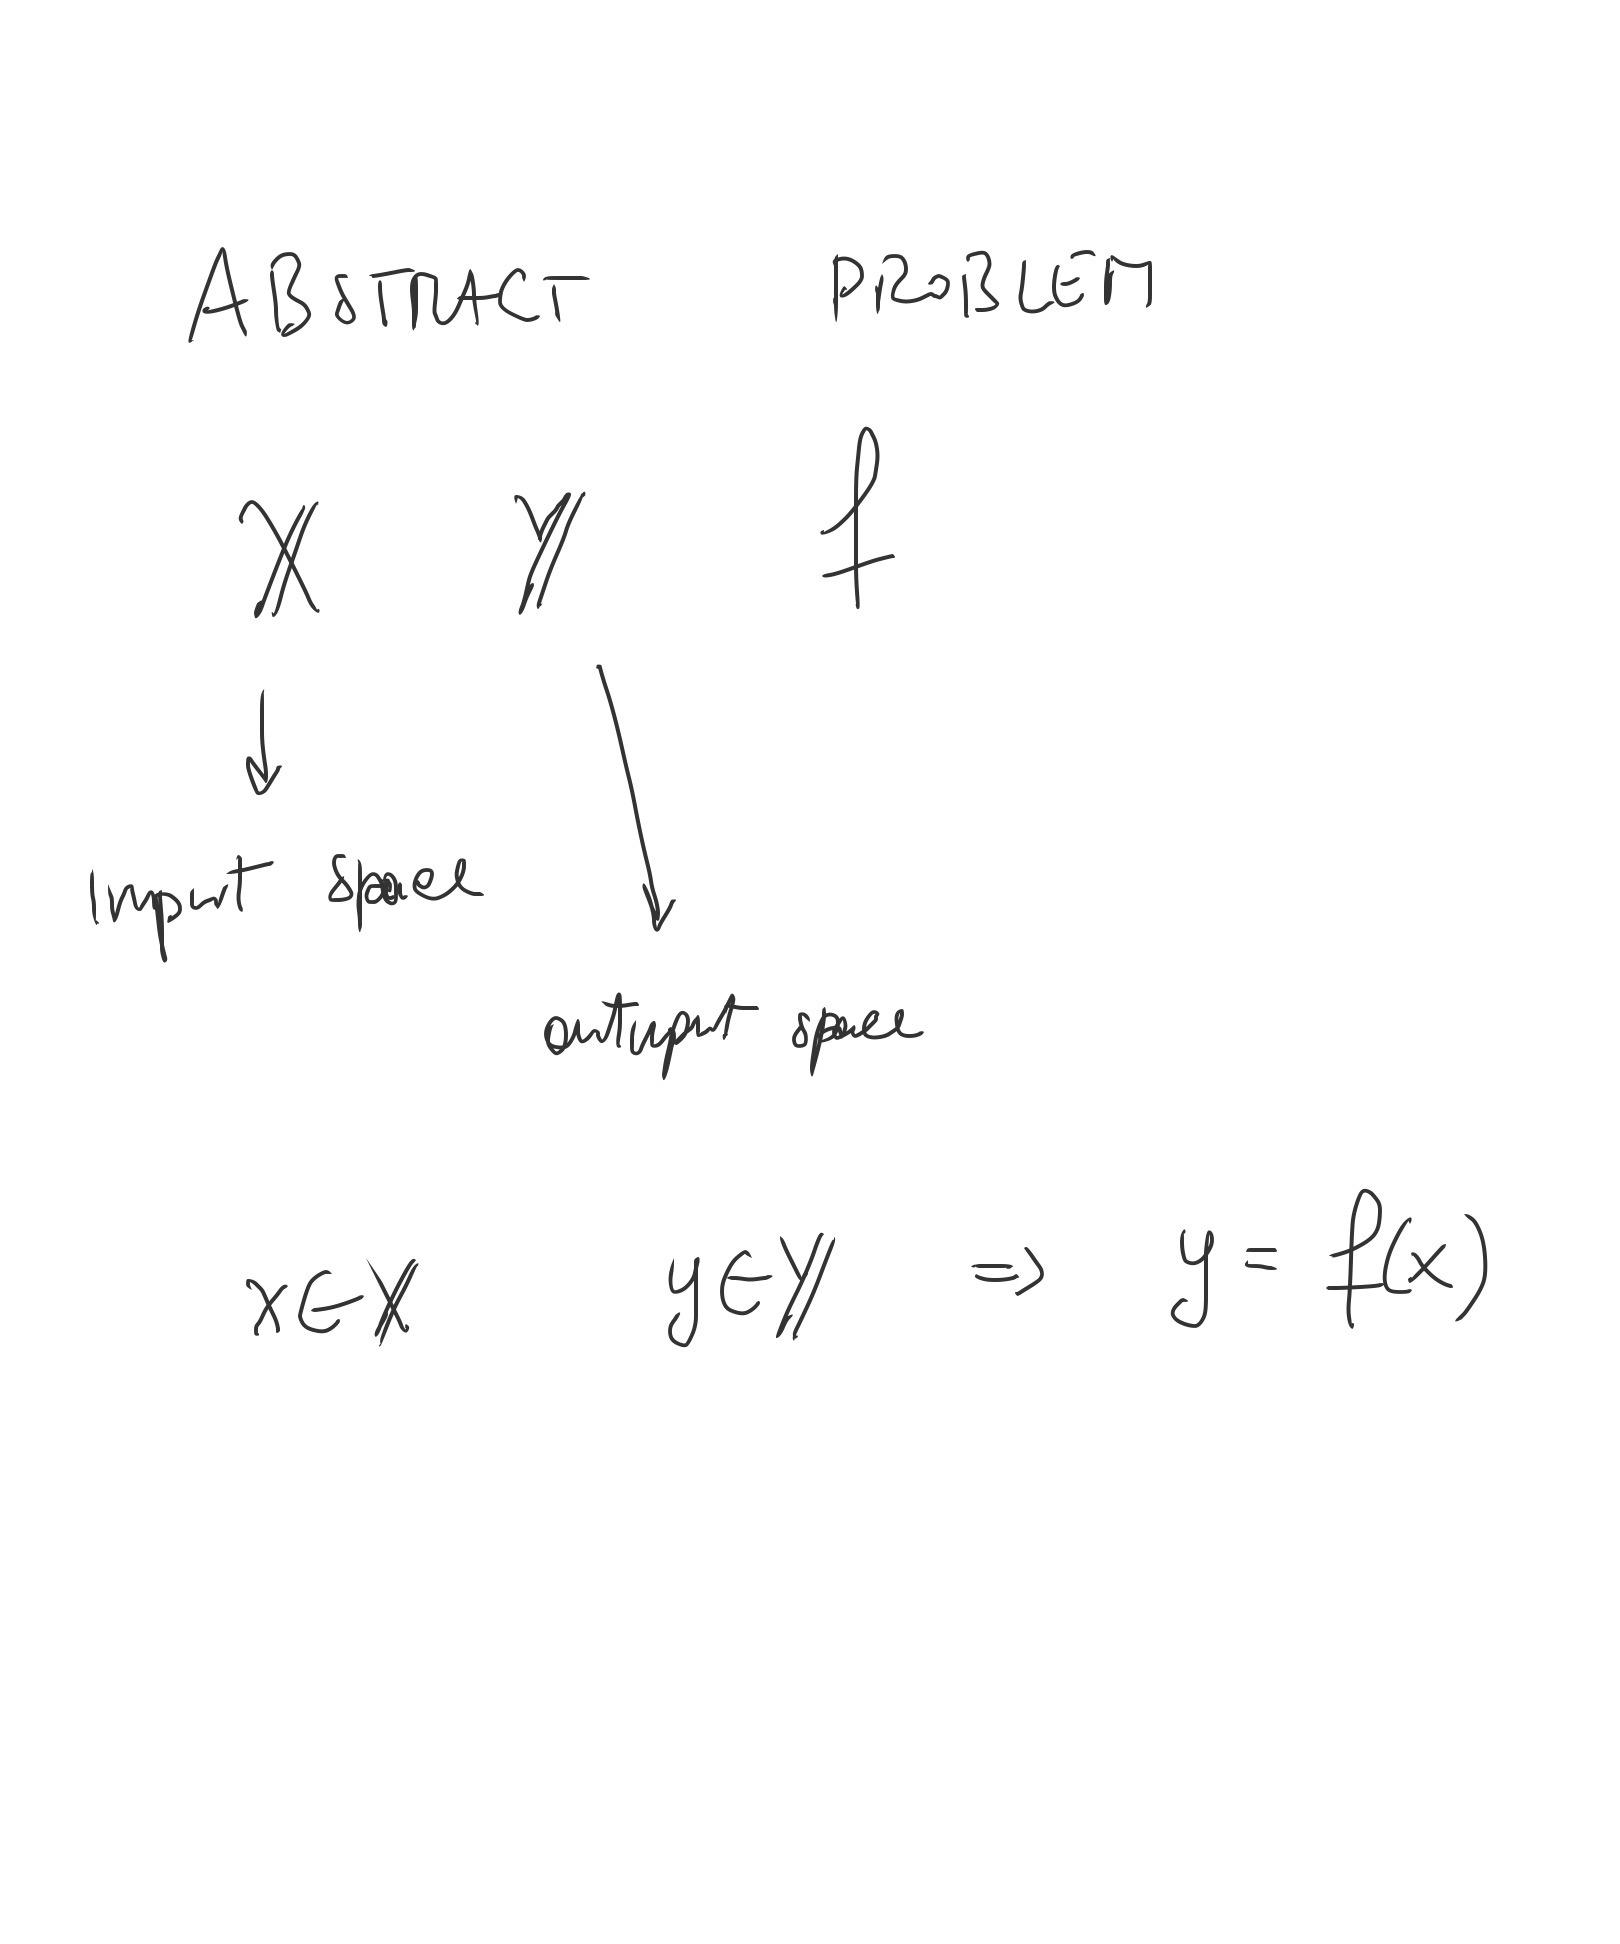 ABSTRACT PROBLEM
𝕏 𝕐 f
↓
Input space
outuput space
x∈𝕏 y∈𝕐 ⇒ y = f(x)